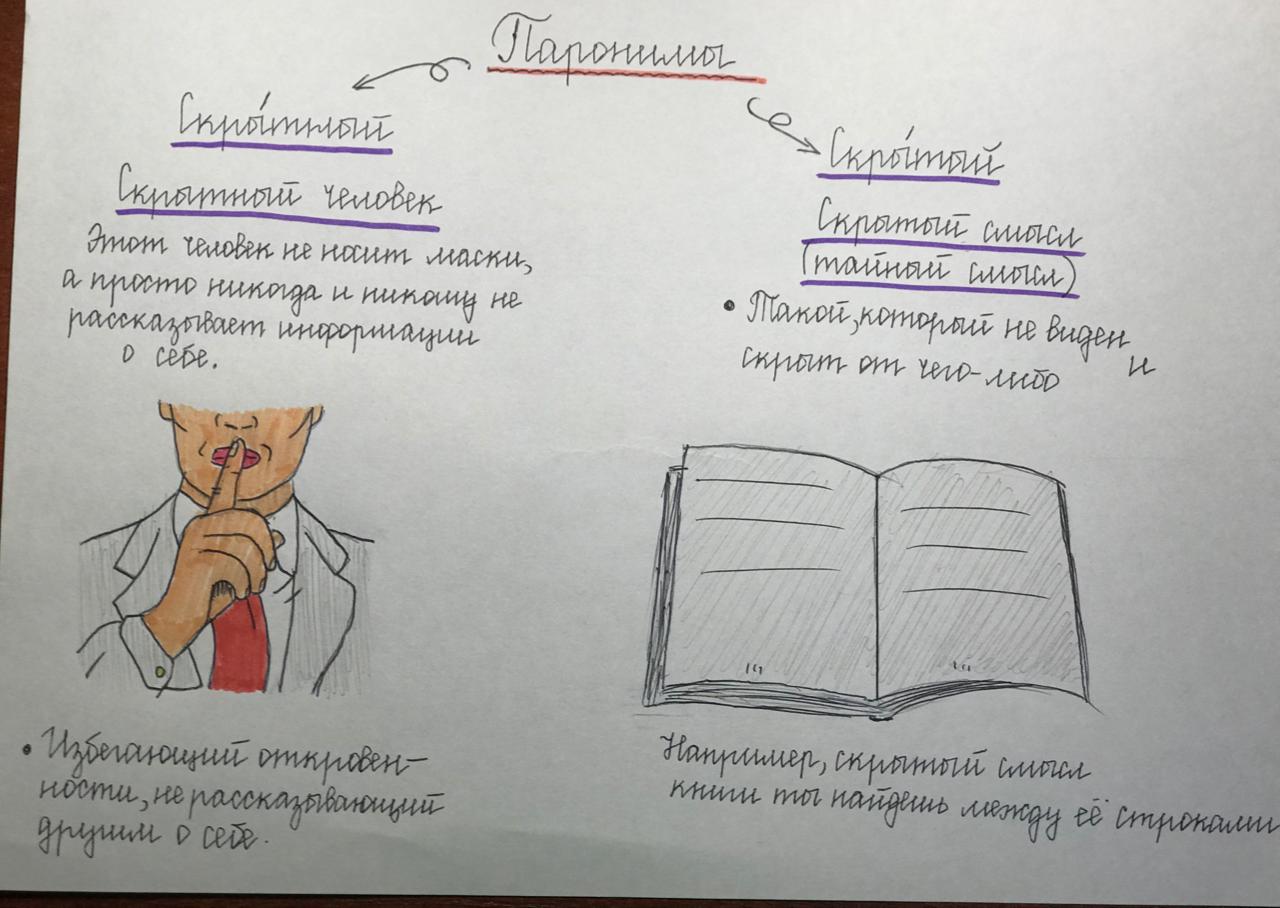 Паронимы
Скры́тный
Скрытный человек
Этот человек не носит маски,
а просто никогда и никому не
рассказывает информации
о себе.
• Избегающий откровен-
ности, не рассказывающий
другим о себе.
Скры́тый
Скрытый смысл
(тайный смысл)
• Такой, который не виден и
скрыт от чего-либо
Например, скрытый смысл
книги ты найдешь между её строками